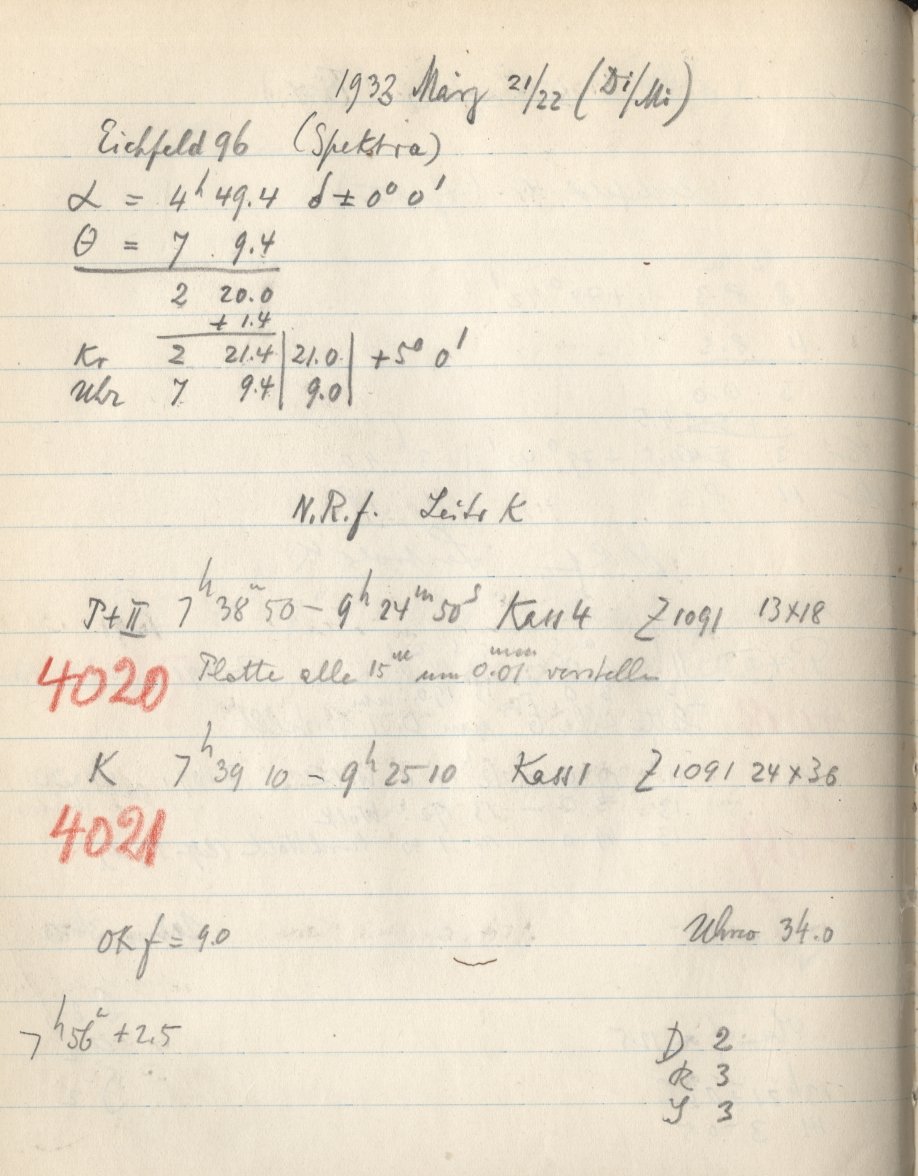 1933 März 21/22 (Di/Mi)
Eichfeld 96 (Spektra)
α = 4h 49.4 δ ± 0° 0'
Θ = 7 9.4
2 20.0
+ 1.4
Kr 2 21.4 | 21.0 | +5° 0'
Uhr 7 9.4 | 9.0 |
N.R.f. Leitr K
T+II 7h 38m 50 – 9h 24m 50s Kass 4 Z 1091 13×18
4020 Platte alle 15m um 0.01mm verstellen
K 7h 39 10 – 9h 25 10 Kass 1 Z 1091 24×36
4021
OK f = 9.0 34.0
7h 56m + 2.5
D 2
R 3
S 3